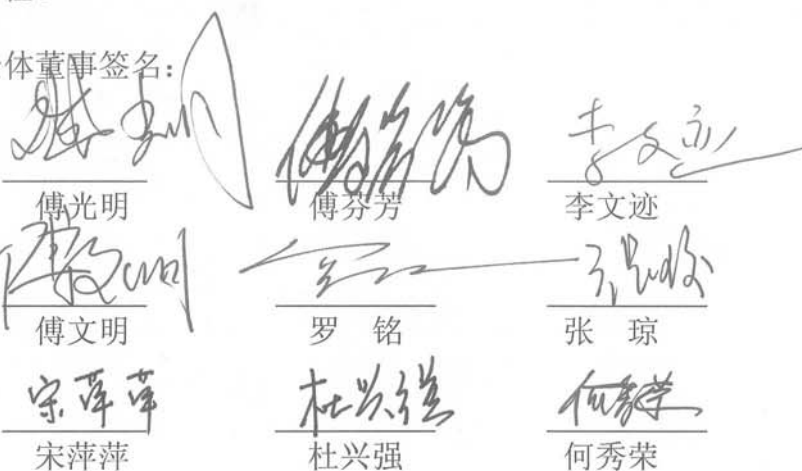 体董事签名:
傅光明 傅芬芳 李文迹
傅文明 罗 铭 张 琼
宋萍萍 杜兴强 何秀荣